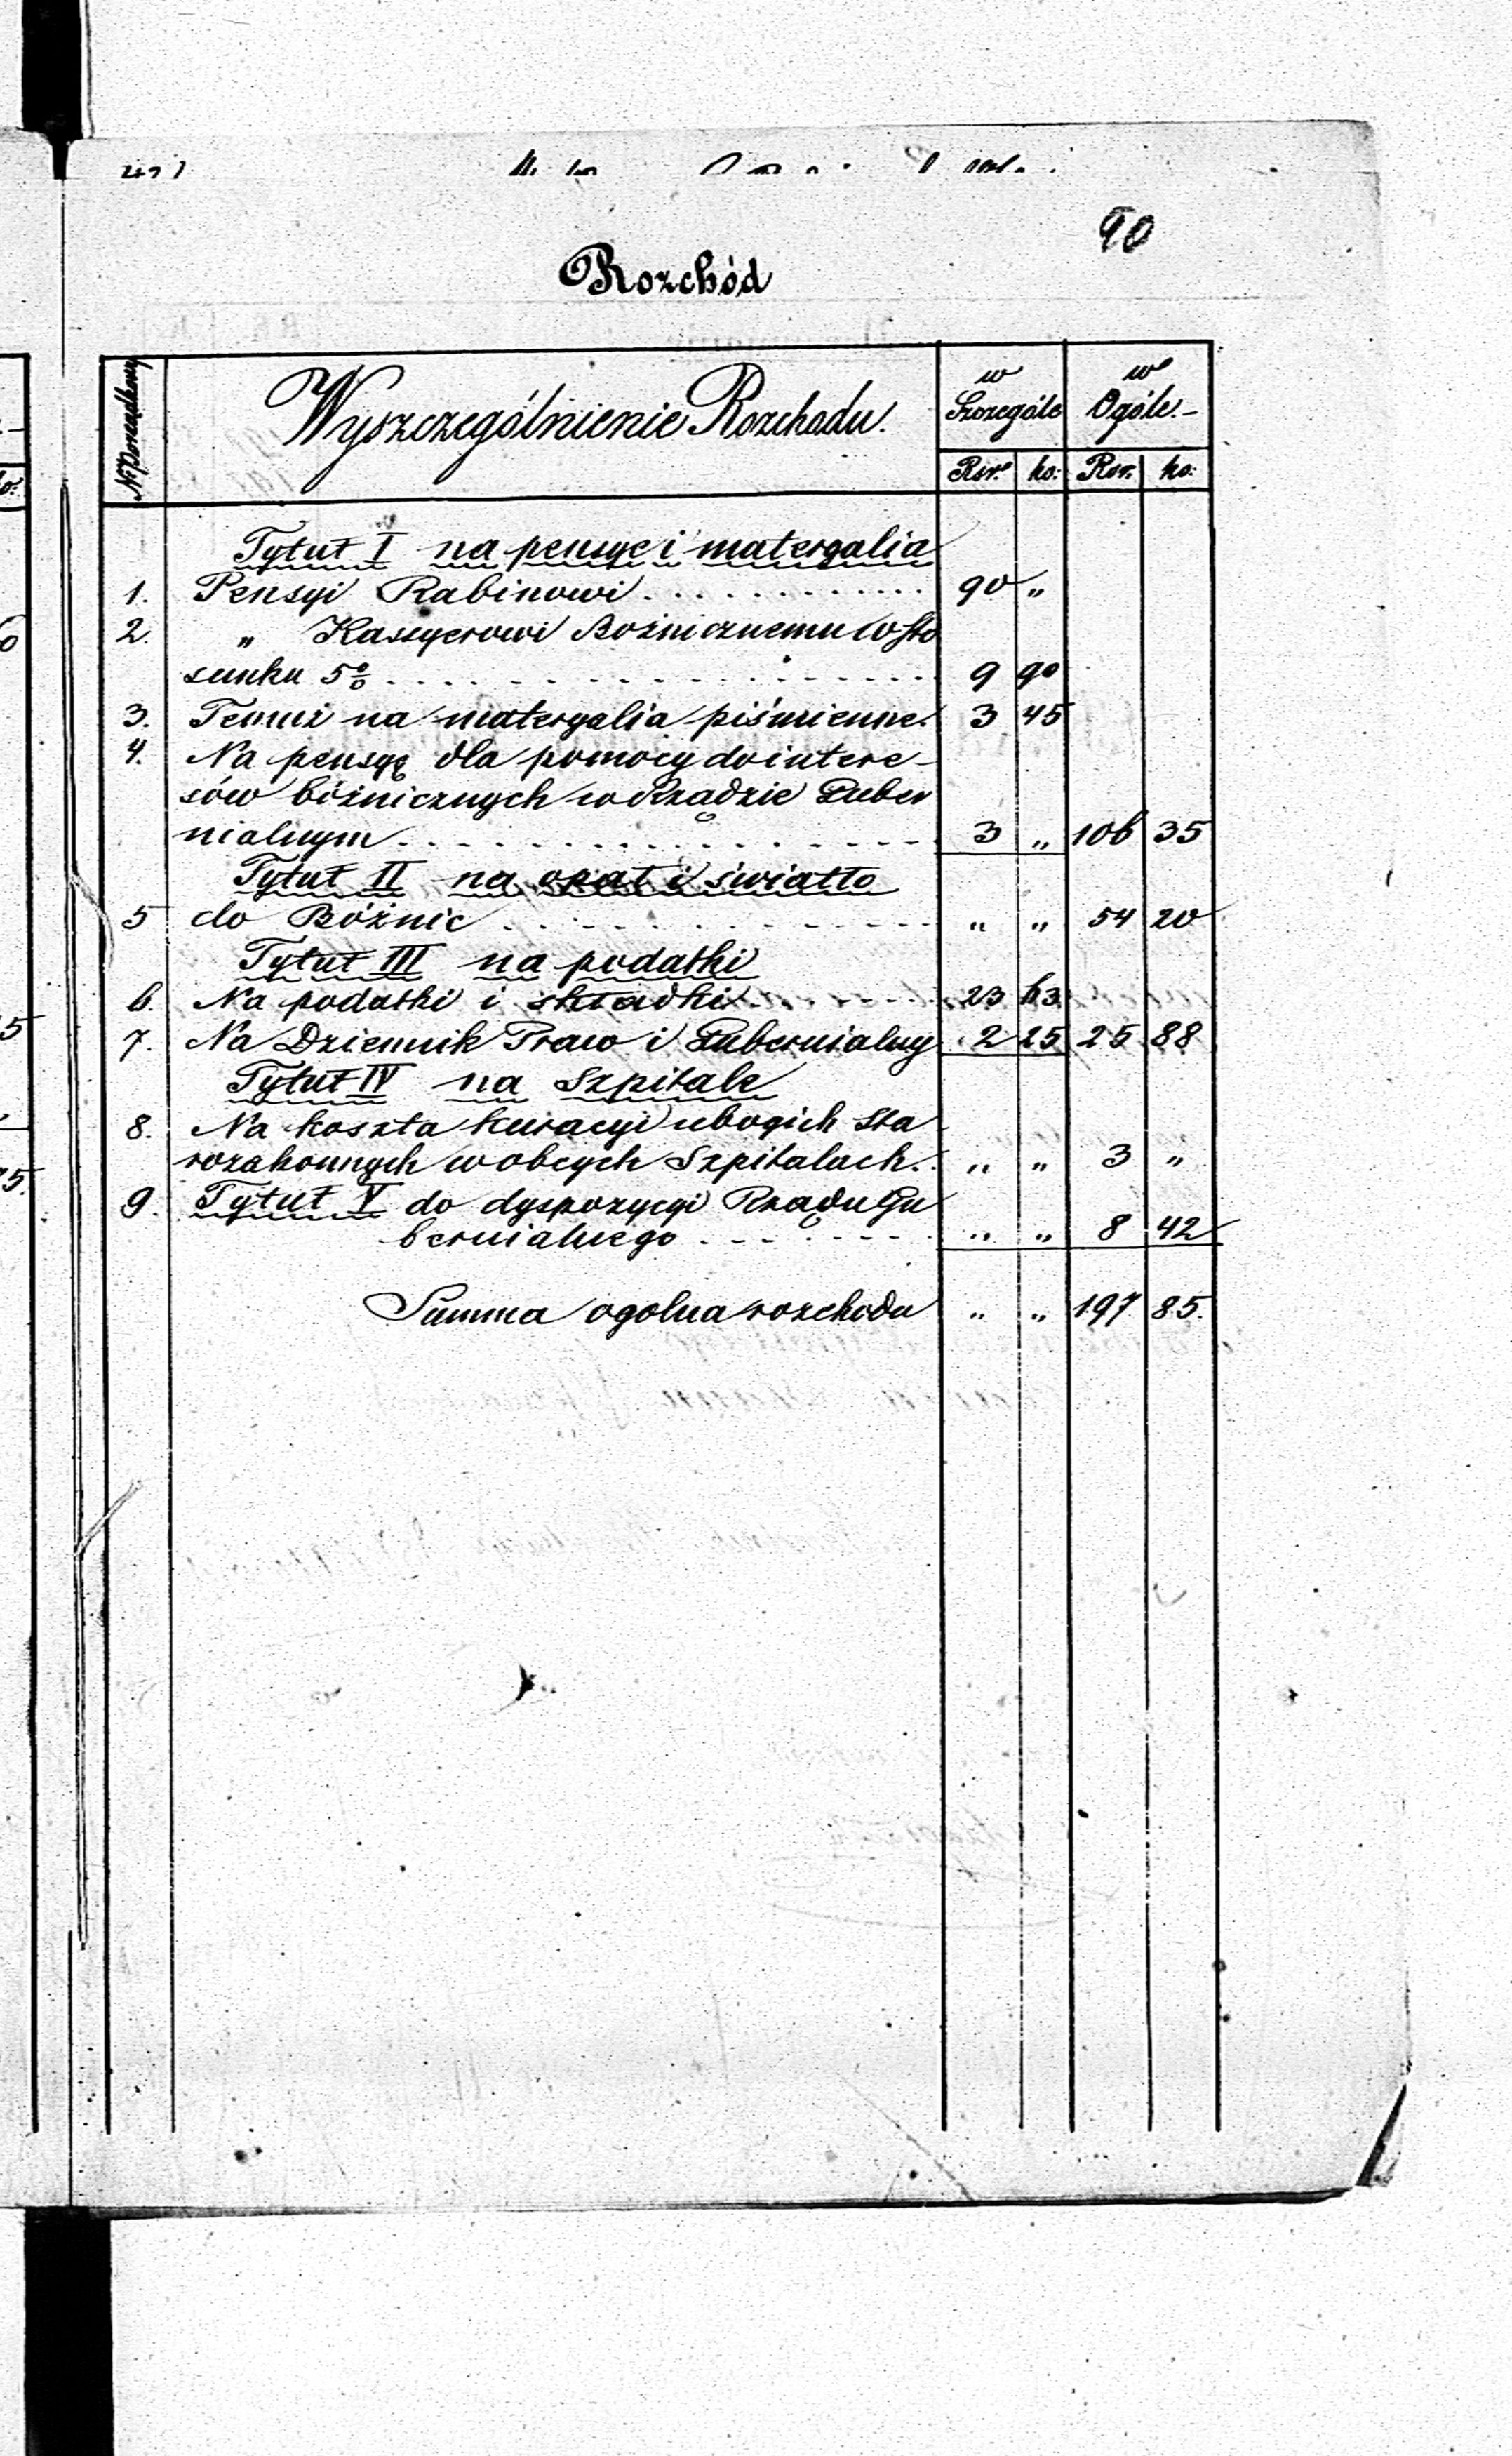 90
Rozchód
№ Porządkowy
Wyszczególnienie Rozchodu.
w Szczególe
we Ogóle.-
Rsr. ko: Rsr. ko:
Tytuł I na pensye i materyalia
1. Pensyi Rabinowi . . . . . . . . . . . . 90 „
2. „ Kassyerowi Bożnicznemu w sto
sunku 5% . . . . . . . . . . . . . . . 9 90
3. Temuż na materyalia piśmienne. 3 45
4. Na pensyę dla pomocy do intere-
sów bóżnicznych w Rządzie Guber
nialnym . . . . . . . . . . . . . . . 3 „ 106 35
Tytuł II na opał i światło
5 do Bóżnic . . . . . . . . . . . . „ „ 54 20
Tytuł III na podatki
6. Na podatki i składki . . . . . . 23 63
7. Na Dziennik Praw i Gubernialny 2 25 25 88
Tytuł IV na Szpitale
8. Na koszta kuracyi ubogich Sta
rozakonnych w obcych Szpitalach. „ „ 3 „
9. Tytuł V do dyspozycyi Rządu Gu
bernialnego . . . . . . . „ „ 8 42
Summa ogolna rozchodu „ „ 197 85.